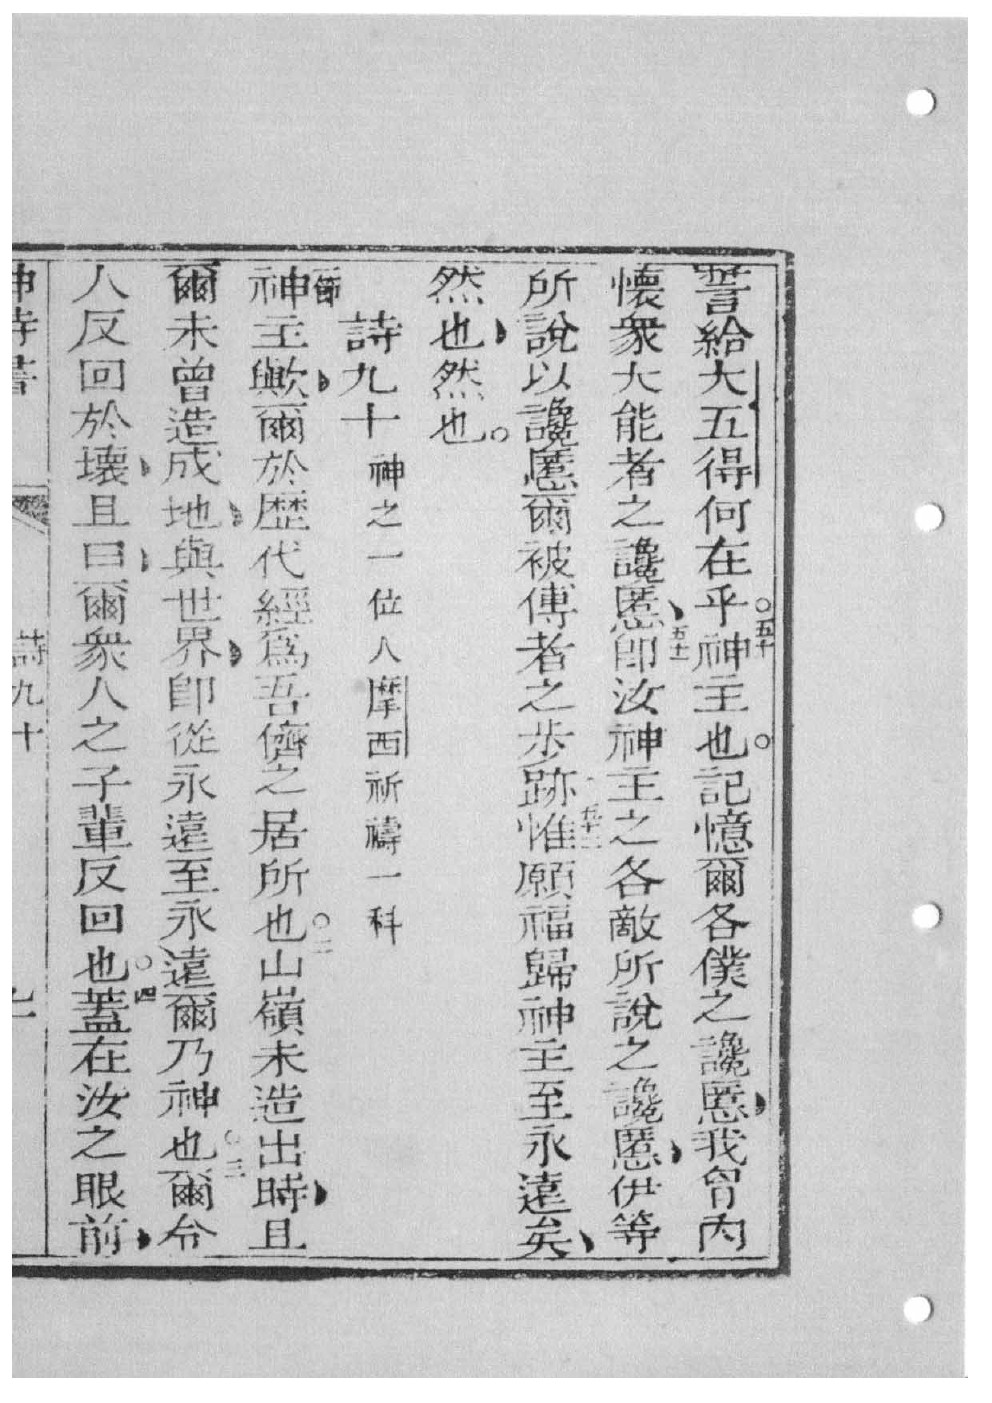 誓給大五得何在乎○五十神主也○記憶爾各僕之讒慝我胷內
懷衆大能者之讒慝五十一卽汝神主之各敵所說之讒慝伊等
所說以讒慝爾被傅者之步跡五十二惟願福歸神主至永遠矣
然也然也○
詩九十 神之一位人摩西祈禱一科
神主歟爾於歷代經爲吾儕之居所也○二山嶺未造出時且
爾未曾造成地與世界卽從永遠至永遠爾乃神也○三爾令
人反回於壞且曰爾衆人之子輩反回也○四蓋在汝之眼前
神詩書 詩九十